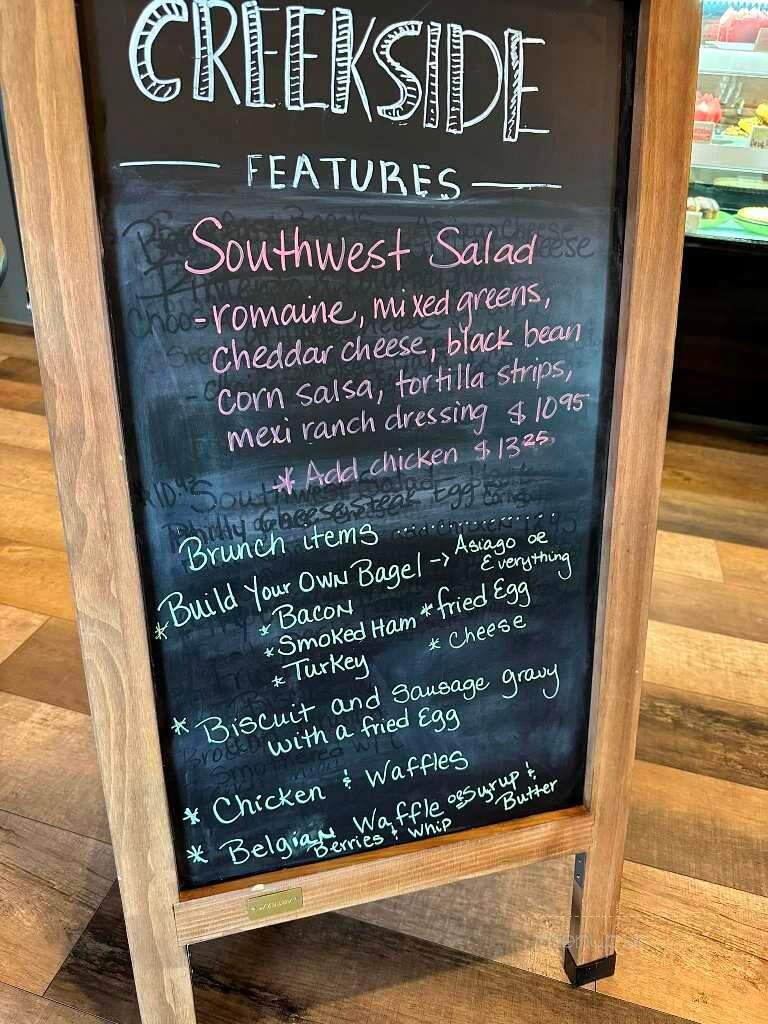 CREEKSIDE
FEATURES
Southwest Salad
-romaine, mixed greens,
cheddar cheese, black bean
corn salsa, tortilla strips,
mexi ranch dressing $10.95
* Add chicken $13.25
Brunch items ................
* Build Your OWN Bagel -> Asiago or
Everything
* Bacon * fried Egg
* Smoked Ham * Cheese
* Turkey
* Biscuit and Sausage gravy
with a fried Egg
* Chicken & Waffles
* Belgian Waffle or Syrup &
Butter
Berries & Whip